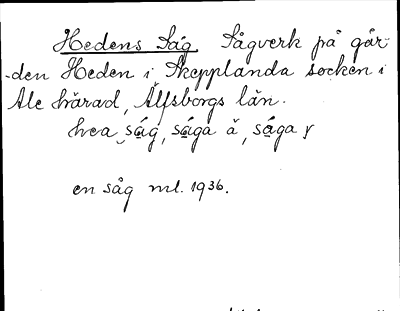 Hedens Såg. Sågverk på går-
den Heden i Skepplanda socken i
Ale härad, Älfsborgs län.
hea såg, såga ä, såga y
en såg ml. 1936.